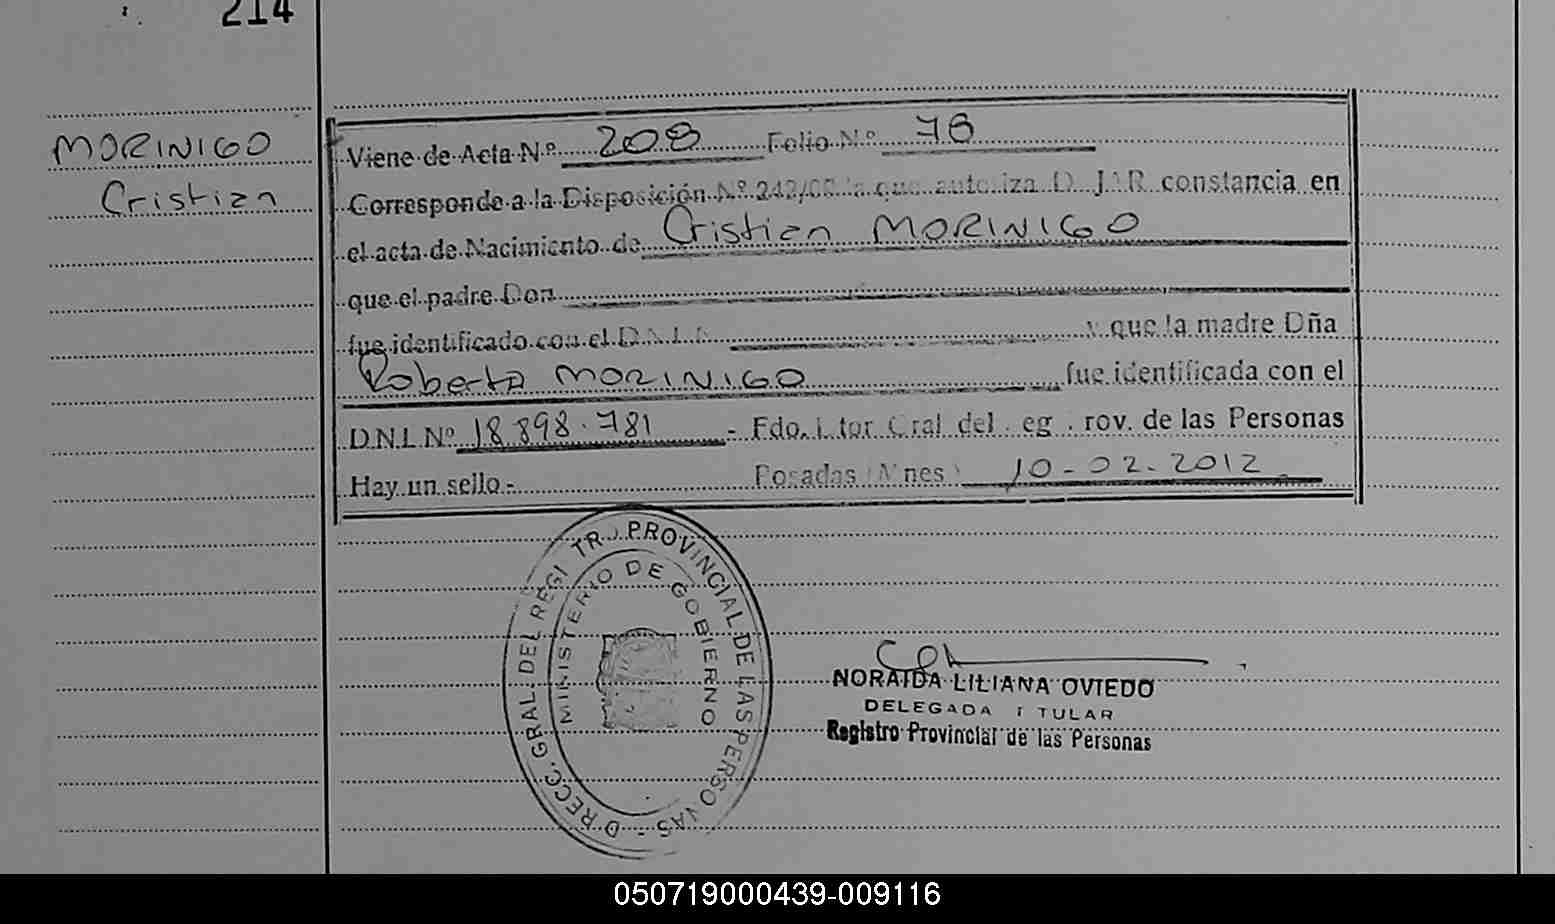 214
MORINIGO
Cristian
Viene de Acta N.º 208 Folio N.º 78
Corresponde a la Disposición Nº 242/00 la que autoriza D. J. R constancia en
el acta de Nacimiento de Cristian MORINIGO
que el padre Don
fue identificado con el D.N.I. y que la madre Dña
Roberta MORINIGO fue identificada con el
D.N.I. Nº 18 898.781 - Fdo. Gral del rov. de las Personas
Hay un sello.- Posadas (Mnes) 10-02-2012
DIRECC. GRAL. DEL REGISTRO PROVINCIAL DE LAS PERSONAS -
MINISTERIO DE GOBIERNO
NORAIDA LILIANA OVIEDO
DELEGADA TITULAR
Registro Provincial de las Personas
050719000439-009116